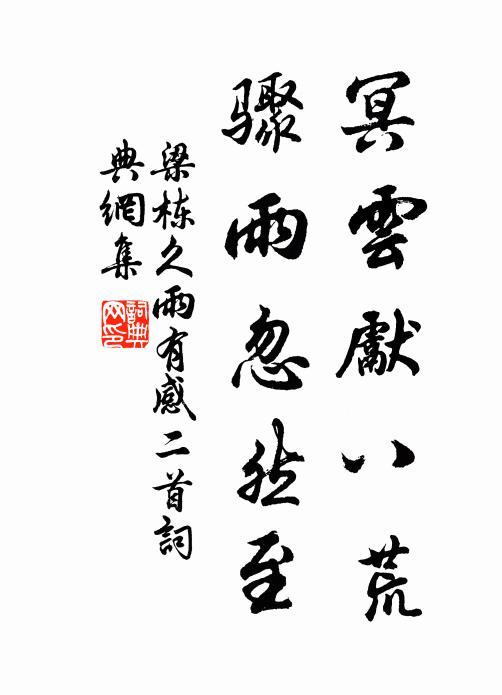 冥雲獻八荒
驟雨忽然至
梁栋久雨有感二首詞
典網集
詞典
网印